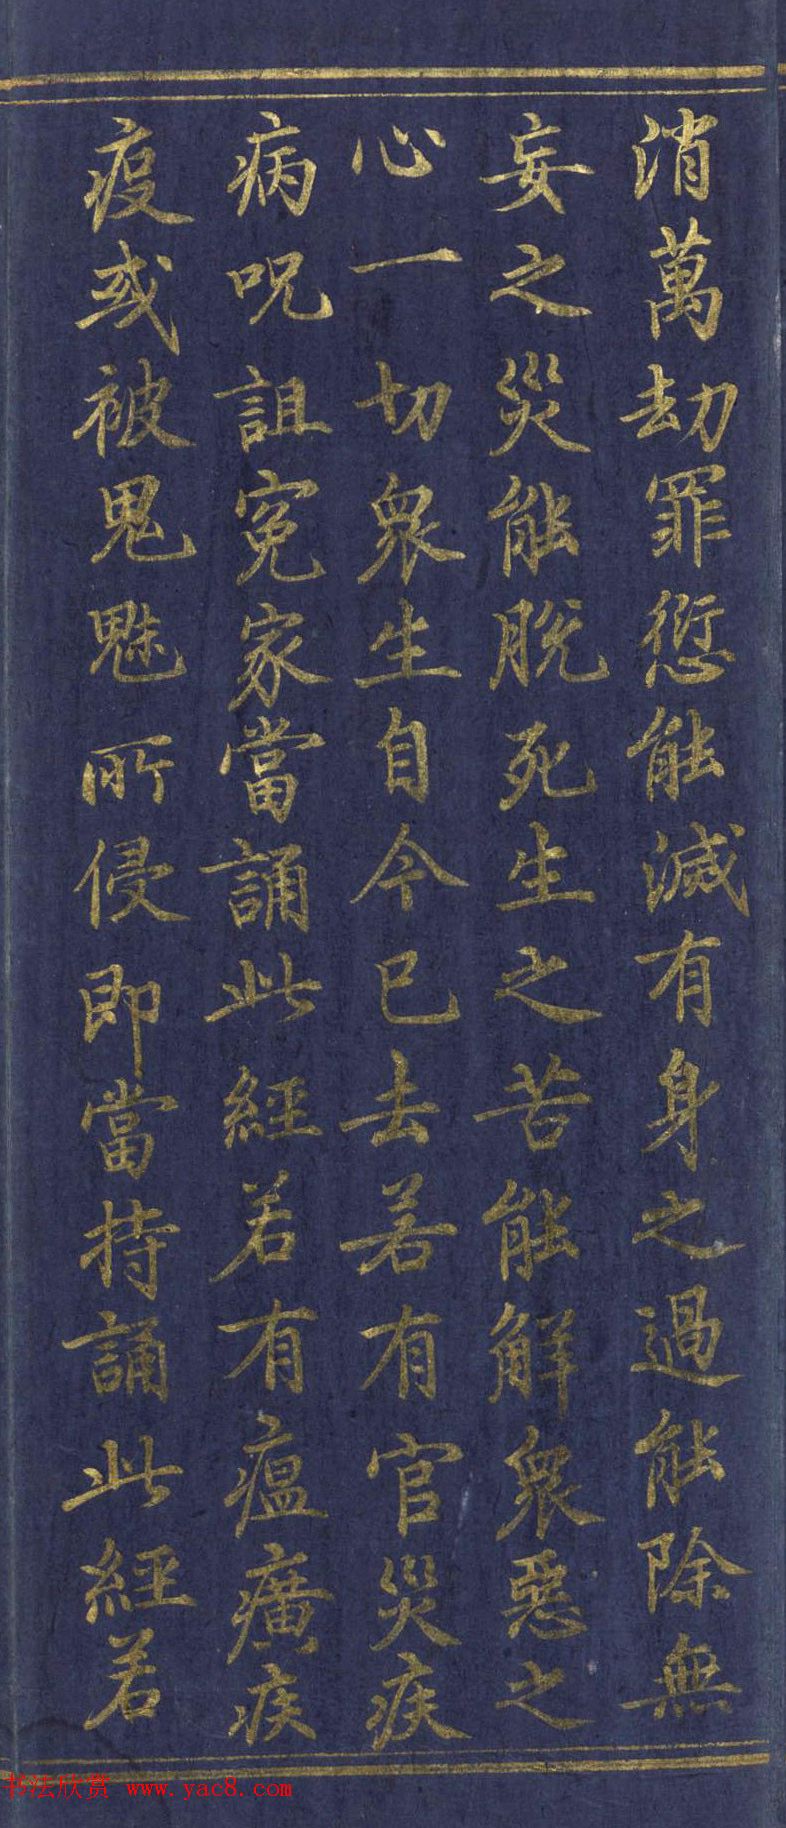 消萬劫罪愆能滅有身之過能除無
妄之災能脫死生之苦能解衆惡之
心一切衆生自今已去若有官災疾
病呪詛寃家當誦此經若有瘟癀疾
疫或被鬼魅所侵即當持誦此經若
书法欣赏 www.yac8.com